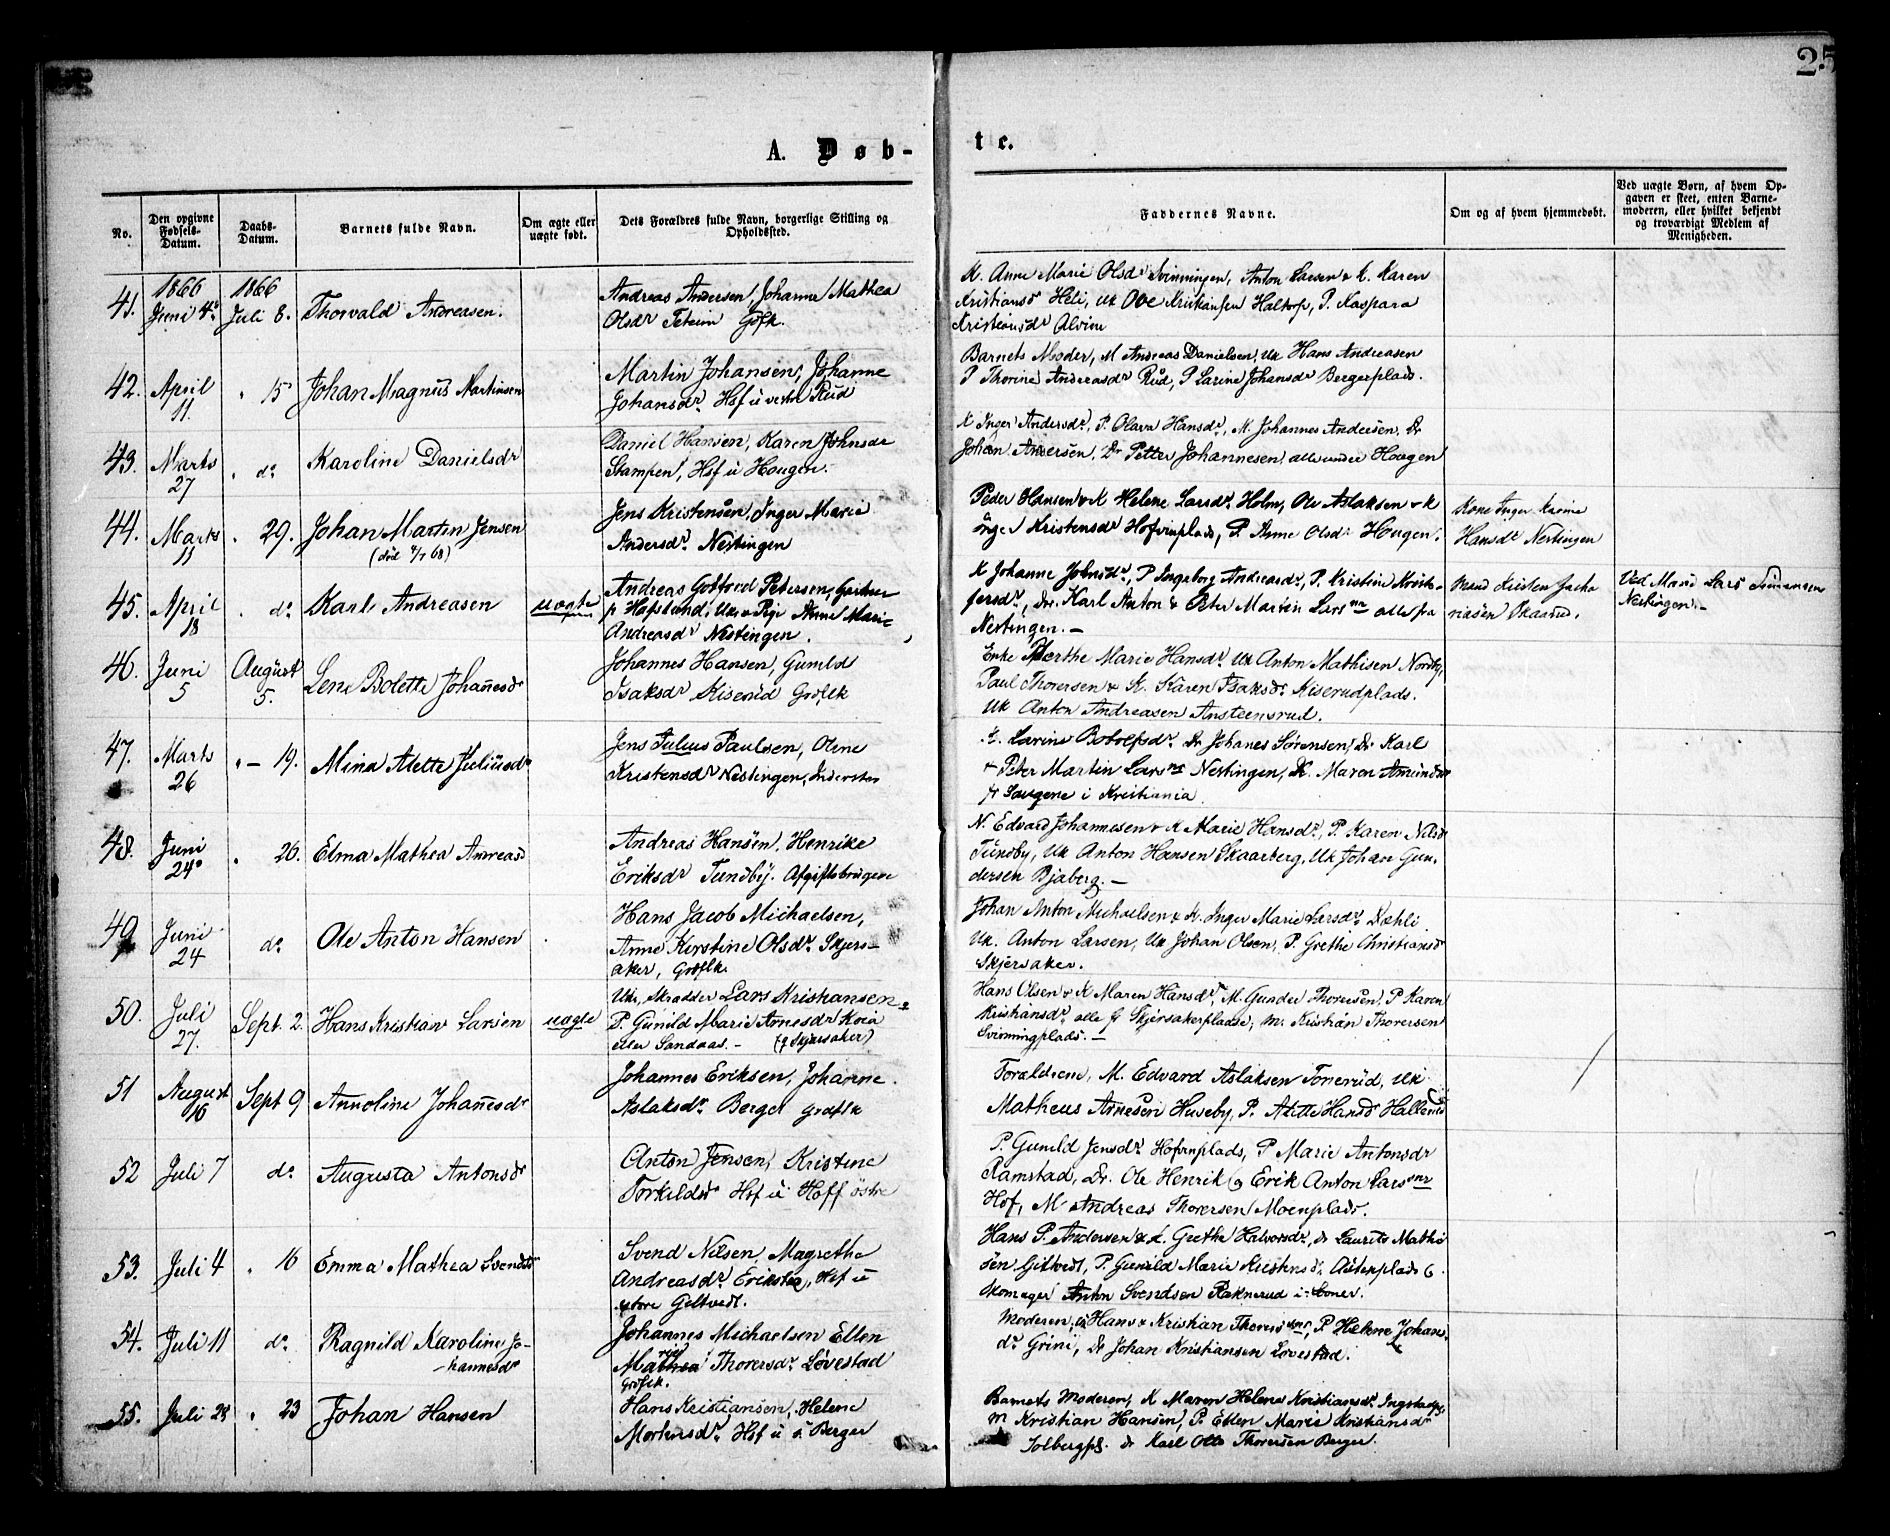 25
A. Døb-
te.
No.
Den opgivne Fødsels-Datum.
Daabs-Datum.
Barnets fulde Navn.
Om ægte eller uægte født.
Dets Forældres fulde Navn, borgerlige Stilling og Opholdssted.
Faddernes Navne.
Om og af hvem hjemmedøbt.
Ved uægte Børn, af hvem Opgaven er skeet, enten Barnemoderen, eller hvilket bekjendt og troværdigt Medlem af Menigheden.
41. 1866 Juni 4. 1866 Juli 8. Thorvald Andreasen.
Andreas Andersen, Johanne Mathea
Olsdr Teteim Gfk.
K. Anne Marie Olsdr Svinningen, Anton Larsen & K. Karen
Kristiansdr Heli, Uk Ove Kristiansen Haltorp, P. Kaspara
Kristiansdr Alvim
42. April 11. " 15 Johan Magnus Martinsen
Martin Johansen, Johanne
Johansdr. Hsf u vestre Rud
Barnets Moder, M Andreas Danielsen, Uk Hans Andreasen
P Thorine Andreasdr Rud, P Larine Johansdr Bergerplads.
43. Marts 27 " do. Karoline Danielsdr
Daniel Hansen, Karen Johnsdr
Stampen, Hsf u Hougen.
K Inger Andersdr, P. Olava Hansdr, M. Johannes Andersen, Dr
Johan Andersen, Dr Petter Johannesen alle under Hougen
44. Marts 11 " 29. Johan Martin Jensen
(død 4/7 68)
Jens Kristensen, Inger Marie
Andersdr. Nestingen
Peder Hansen & K Helene Larsdr Holm, Ole Aslaksen & K
Inger Kristensdr Hofernplads, P. Anne Olsdr Hougen.
Kone Inger
Hansdr Nestingen
45. April 18 " do. Karl Andreasen uægte
Andreas Gotfred Petersen, Gartner
p Hafslund, Uk & Pige Anne Marie
Andreasdr Nestingen.
K Johanne Johnsdr, P Ingeborg Andreasdr, P. Kristine Kristo-
fersdr, Dr. Karl Anton & Peter Martin Larsnr alle fra
Nestingen. —
Mand Kristen Zacha
riasen Skaarud.
Ved Mand Lars Amundsen
Nestingen. —
46. Juni 5 August 5. Lene Bolette Johannesdr
Johannes Hansen, Gunild
Isaksdr Kiserud Grdflk
Enke Berthe Marie Hansdr, Uk Anton Mathisen Nordby,
Paul Thorersen & K. Karen Isaksdr Kiserudplads.
Uk Anton Andreasen Ansteensrud.
47. Marts 26 " — 19. Mina Alette Juliusdr
Jens Julius Paulsen, Oline
Kristensdr Nestingen, Inderster
K. Larine Botolfsdr. Dr Johanes Sørensen, Dr Karl
& Peter Martin Larsnr Nestingen, K. Maren Amundsdr
fr Saugene i Kristiania
48. Juni 24 " 26. Elma Mathea Andreasd
Andreas Hansen, Henrike
Eriksdr Tundby. Afgiftsbrugere
N. Edvard Johannesen & K Marie Hansdr, P. Karen Nilsdr
Tundby, Uk Anton Hansen Skaarberg, Uk Johan Gun-
dersen Bjaberg. —
49. Juni 24 do. Ole Anton Hansen
Hans Jacob Michaelsen,
Anne Kirstine Olsdr. Skjers-
aker, Grdflk.
Johan Anton Michaelsen & K. Inger Marie Larsdr Dæhli
Uk. Anton Larsen, Uk Johan Olsen, P. Grethe Christiansdr
Skjersaker.
50. Juli 27. Sept. 2. Hans Kristian Larsen uægte
Uk, Skradder Lars Kristiansen
P. Gunild Marie Arnesdr Koia
eller Sandaas. — (f Skjersaker)
Hans Olsen & K Maren Hansdr, M. Gunder Thorersen, P Karen
Kristiansdr alle f Skjersakerpladse, M. Kristian Thorersen
Svinningplads. —
51 August 16 Sept 9 Annoline Johanesdr
Johannes Eriksen, Johanne
Aslaksdr Berger Grdflk
Forældrene, M. Edvard Aslaksen Tonerud, Uk
Matheus Arnesen Huseby, P. Alette Hansdr Hallerud
52 Juli 7 do. Augusta Antonsdr
Anton Jensen, Kristine
Torkildsdr Hsf u Hoff østre
P. Gunild Jensdr Hofernplads, P Marie Antonsdr
Ramstad, Dr. Ole Henrik og Erik Anton Larssnr
Hof, M Andreas Thorersen Moenplads.
53. Juli 4 " 16 Emma Mathea Svendsdr
Svend Nilsen Magrethe
Andreasdr Erikstea, Hsf u
store Geltvedt.
Hans P. Andersen & K. Grethe Halvorsdr, Dr Laurits Mathi
sen Giltvedt, P. Gunild Marie Kristensdr. Aslenplads
Skomager Anton Svendsen Raknerud
54. Juli 11 do. Ragnild Karoline Jo-
hannesdr
Johannes Michaelsen Ellen
Mathea Thorersdr Løvestad
Grdflk.
Moderen, Hans & Kristian Thorerssnr, P Helene Johans-
dr Grini, Dr Johan Kristiansen Lovestad.
55. Juli 28 " 23 Johan Hansen
Hans Kristiansen, Helene
Mortensdr. Hsf u s. Berger
Barnets Moderen, K Maren Helene Kristiansdr
M Kristian Hansen, P. Ellen Marie Kristiansdr
Solbergpl. Dr Karl Otto Thorersen Berger.